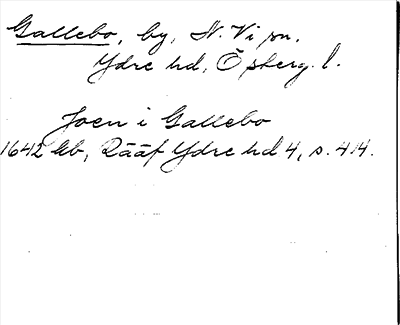 Gallebo, by, N. Vi sn.
Ydre hd, Östergö. l.
Joen i Gallebo
1642 kb, Rääf Ydre hd 4, s. 414.